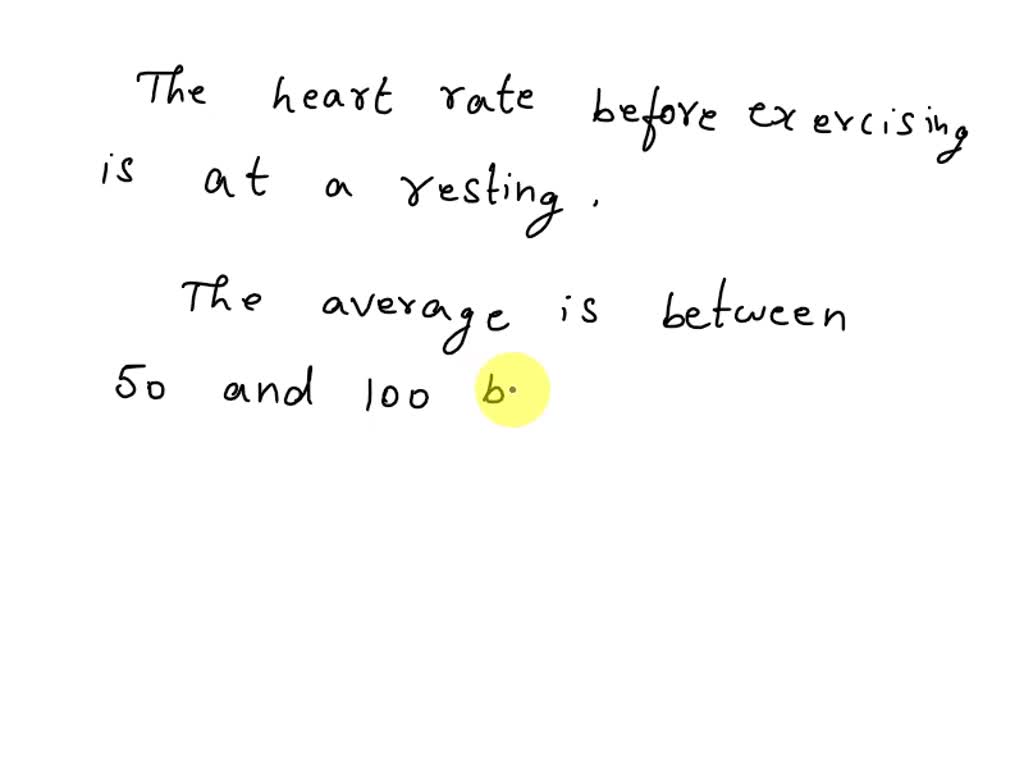 The heart rate before exercising
is at a resting.
The average is between
50 and 100 b